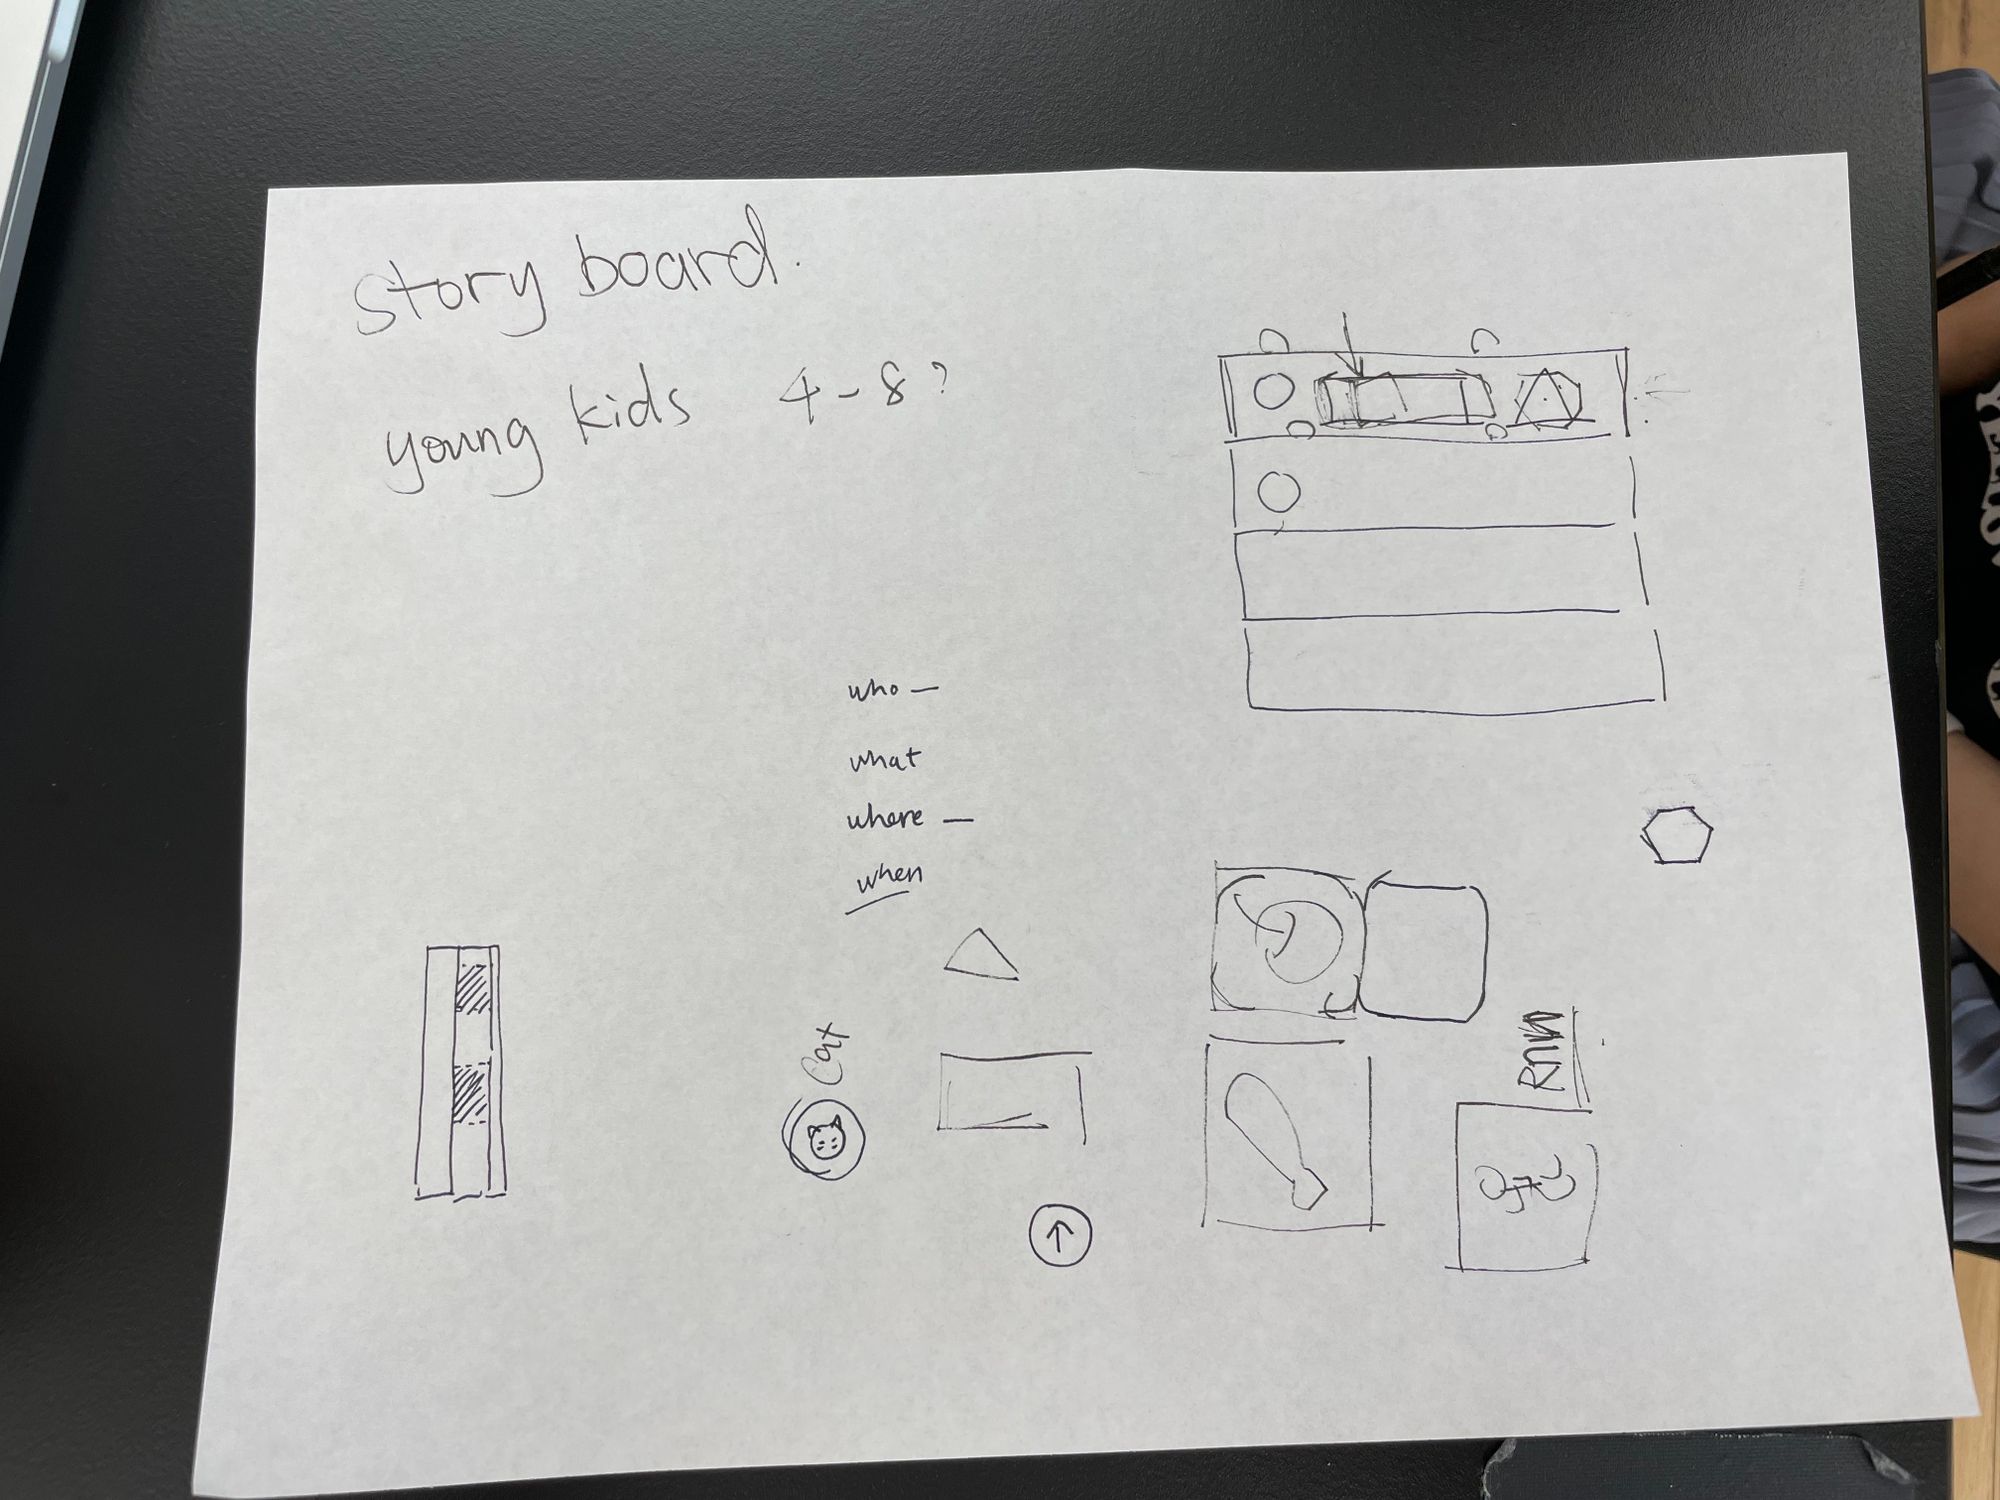 story board.
young kids 4-8?
who —
what
where —
when
Cat
RUN